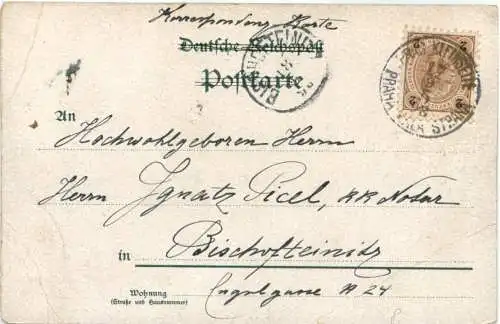 Korrespondenz-Karte
Deutsche Reichspost
Postkarte
An
Hochwohlgeboren Herrn
Herrn Ignatz Picel, k k Notar
in Bischofteinitz
Wohnung
(Straße und Hausnummer)
Engelgasse N 24